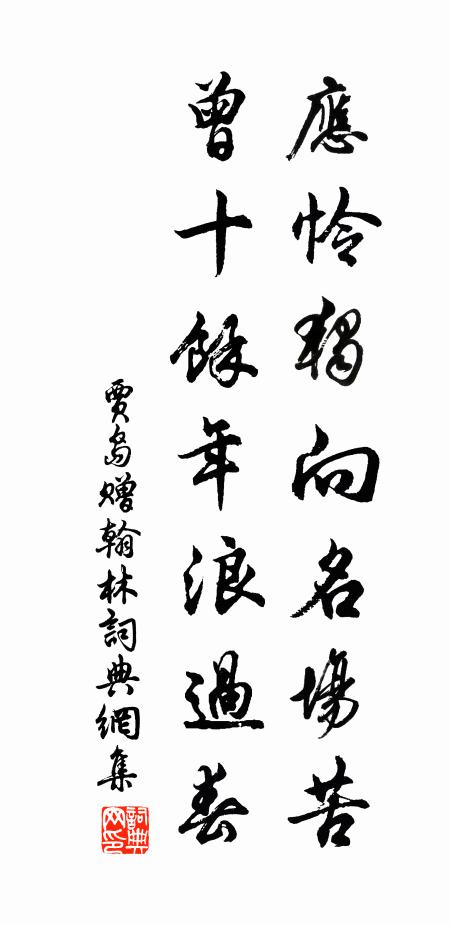 應憐獨向名場苦
曾十餘年浪過春
賈島贈翰林詞典網集
詞典
网印